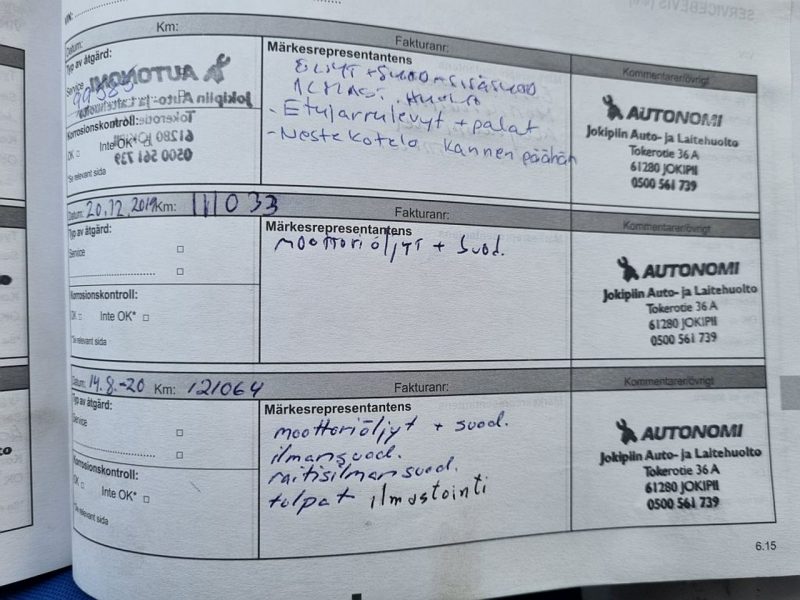 Km:
Fakturanr:
Datum:
Typ av åtgärd:
Service
99585
AUTONOMI
Jokipiin Auto- ja Laitehuolto
Tokerotie
61280 JOKIPII
0500 561 739
Korrosionskontroll:
OK Inte OK*
*Se relevant sida
Märkesrepresentantens
ÖLJYT + SUOD + SISÄSUOD
- Etujarrulevyt + palat
- Nestekotelo kannen päähän
Kommentarer/övrigt
AUTONOMI
Jokipiin Auto- ja Laitehuolto
Tokerotie 36 A
61280 JOKIPII
0500 561 739
Datum: 20.12.2019 Km: 111033
Fakturanr:
Typ av åtgärd:
Service
Korrosionskontroll:
OK Inte OK*
*Se relevant sida
Märkesrepresentantens
moottoriöljyt + suod.
Kommentarer/övrigt
AUTONOMI
Jokipiin Auto- ja Laitehuolto
Tokerotie 36 A
61280 JOKIPII
0500 561 739
Datum: 14.8.-20 Km: 121064
Fakturanr:
Typ av åtgärd:
Service
Korrosionskontroll:
OK Inte OK*
*Se relevant sida
Märkesrepresentantens
moottoriöljyt + suod.
ilmansuod.
raitisilmansuod.
tulpat ilmastointi
Kommentarer/övrigt
AUTONOMI
Jokipiin Auto- ja Laitehuolto
Tokerotie 36 A
61280 JOKIPII
0500 561 739
6.15